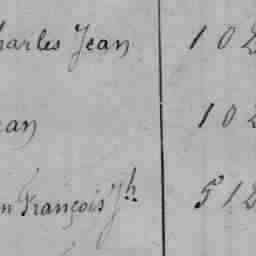 harles Jean 102
ean 102
n François Jh 512